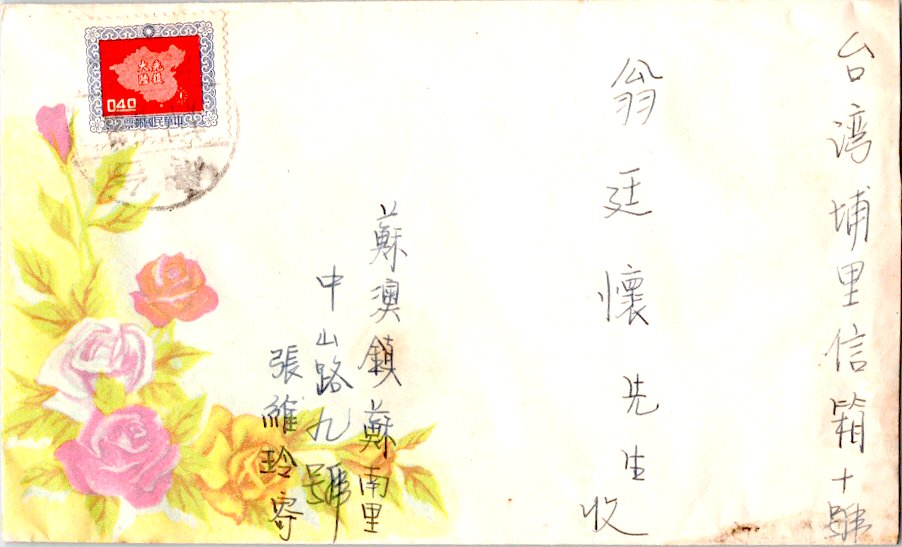 台湾埔里信箱十號
翁廷懷先生
收
蘇澳鎮蘇南里
中山路九號
張維玲寄
光復
大陸
040
票郵國民華中